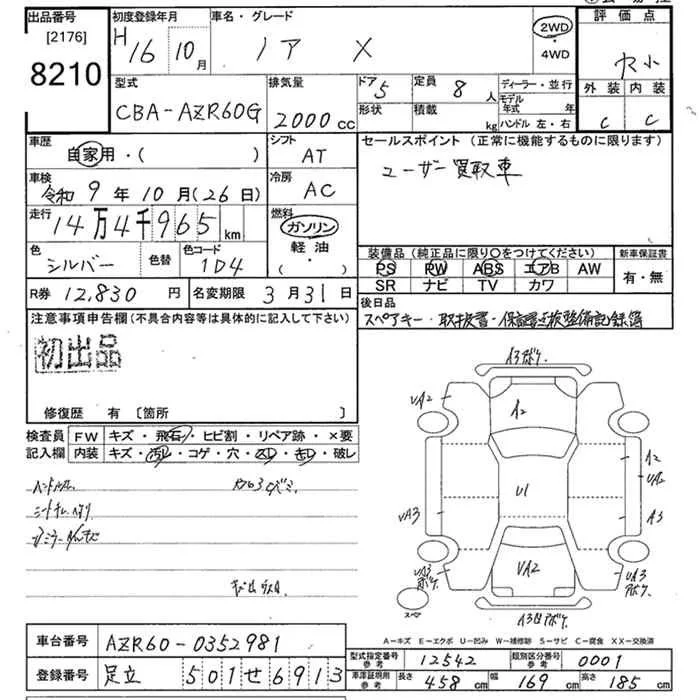 出品番号 初度登録年月 車名・グレード 2WD 評価点
[2176] H16 10月 ノア X ・4WD
8210 型式 排気量 ドア 5 定員 8人 ディーラー・並行 外装 内装
CBA-AZR60G 2000cc 形状 積載 kg モデル年式 年 C C
ハンドル 左・右
車歴 自家用・( ) シフト AT セールスポイント(正常に機能するものに限ります)
車検 令和9年10月(26日) 冷房 AC ユーザー買取車
走行 14万4千965km 燃料 ガソリン
軽油
・( )
色 シルバー 色替 色コード 1D4 装備品(純正品に限り○をつけてください) 新車保証書
PS PW ABS エアB AW 有・無
SR ナビ TV カワ
R券 12,830円 名変期限 3月31日 後日品
注意事項申告欄(不具合内容等は具体的に記入して下さい) スペアキー・取扱書・保証書・点検整備記録簿
初出品
修復歴 有 [箇所 ]
検査員 FW キズ・飛石・ヒビ割・リペア跡・×要
記入欄 内装 キズ・汚レ・コゲ・穴・スレ・キレ・破レ
A2
VA2
A2
VA2
U1
VA3
A3
VA3
VA2
VA3
スペア
A-キズ E-エクボ U-凹み W-補修跡 S-サビ C-腐食 XX-交換済
車台番号 AZR60-0352981
登録番号 足立 501せ6913
型式指定番号 参考 12542 類別区分番号 参考 0001
車庫証明用 参考 長さ 458cm 幅 169cm 高さ 185cm